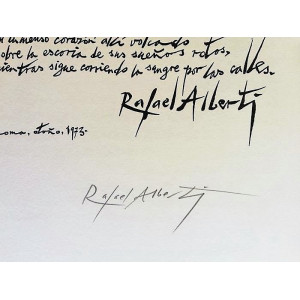 inmenso corazón allí volcado
sobre la escoria de sus sueños rotos,
mientras sigue corriendo la sangre por las calles.
Rafael Alberti
Roma, otoño, 1973.
Rafael Alberti